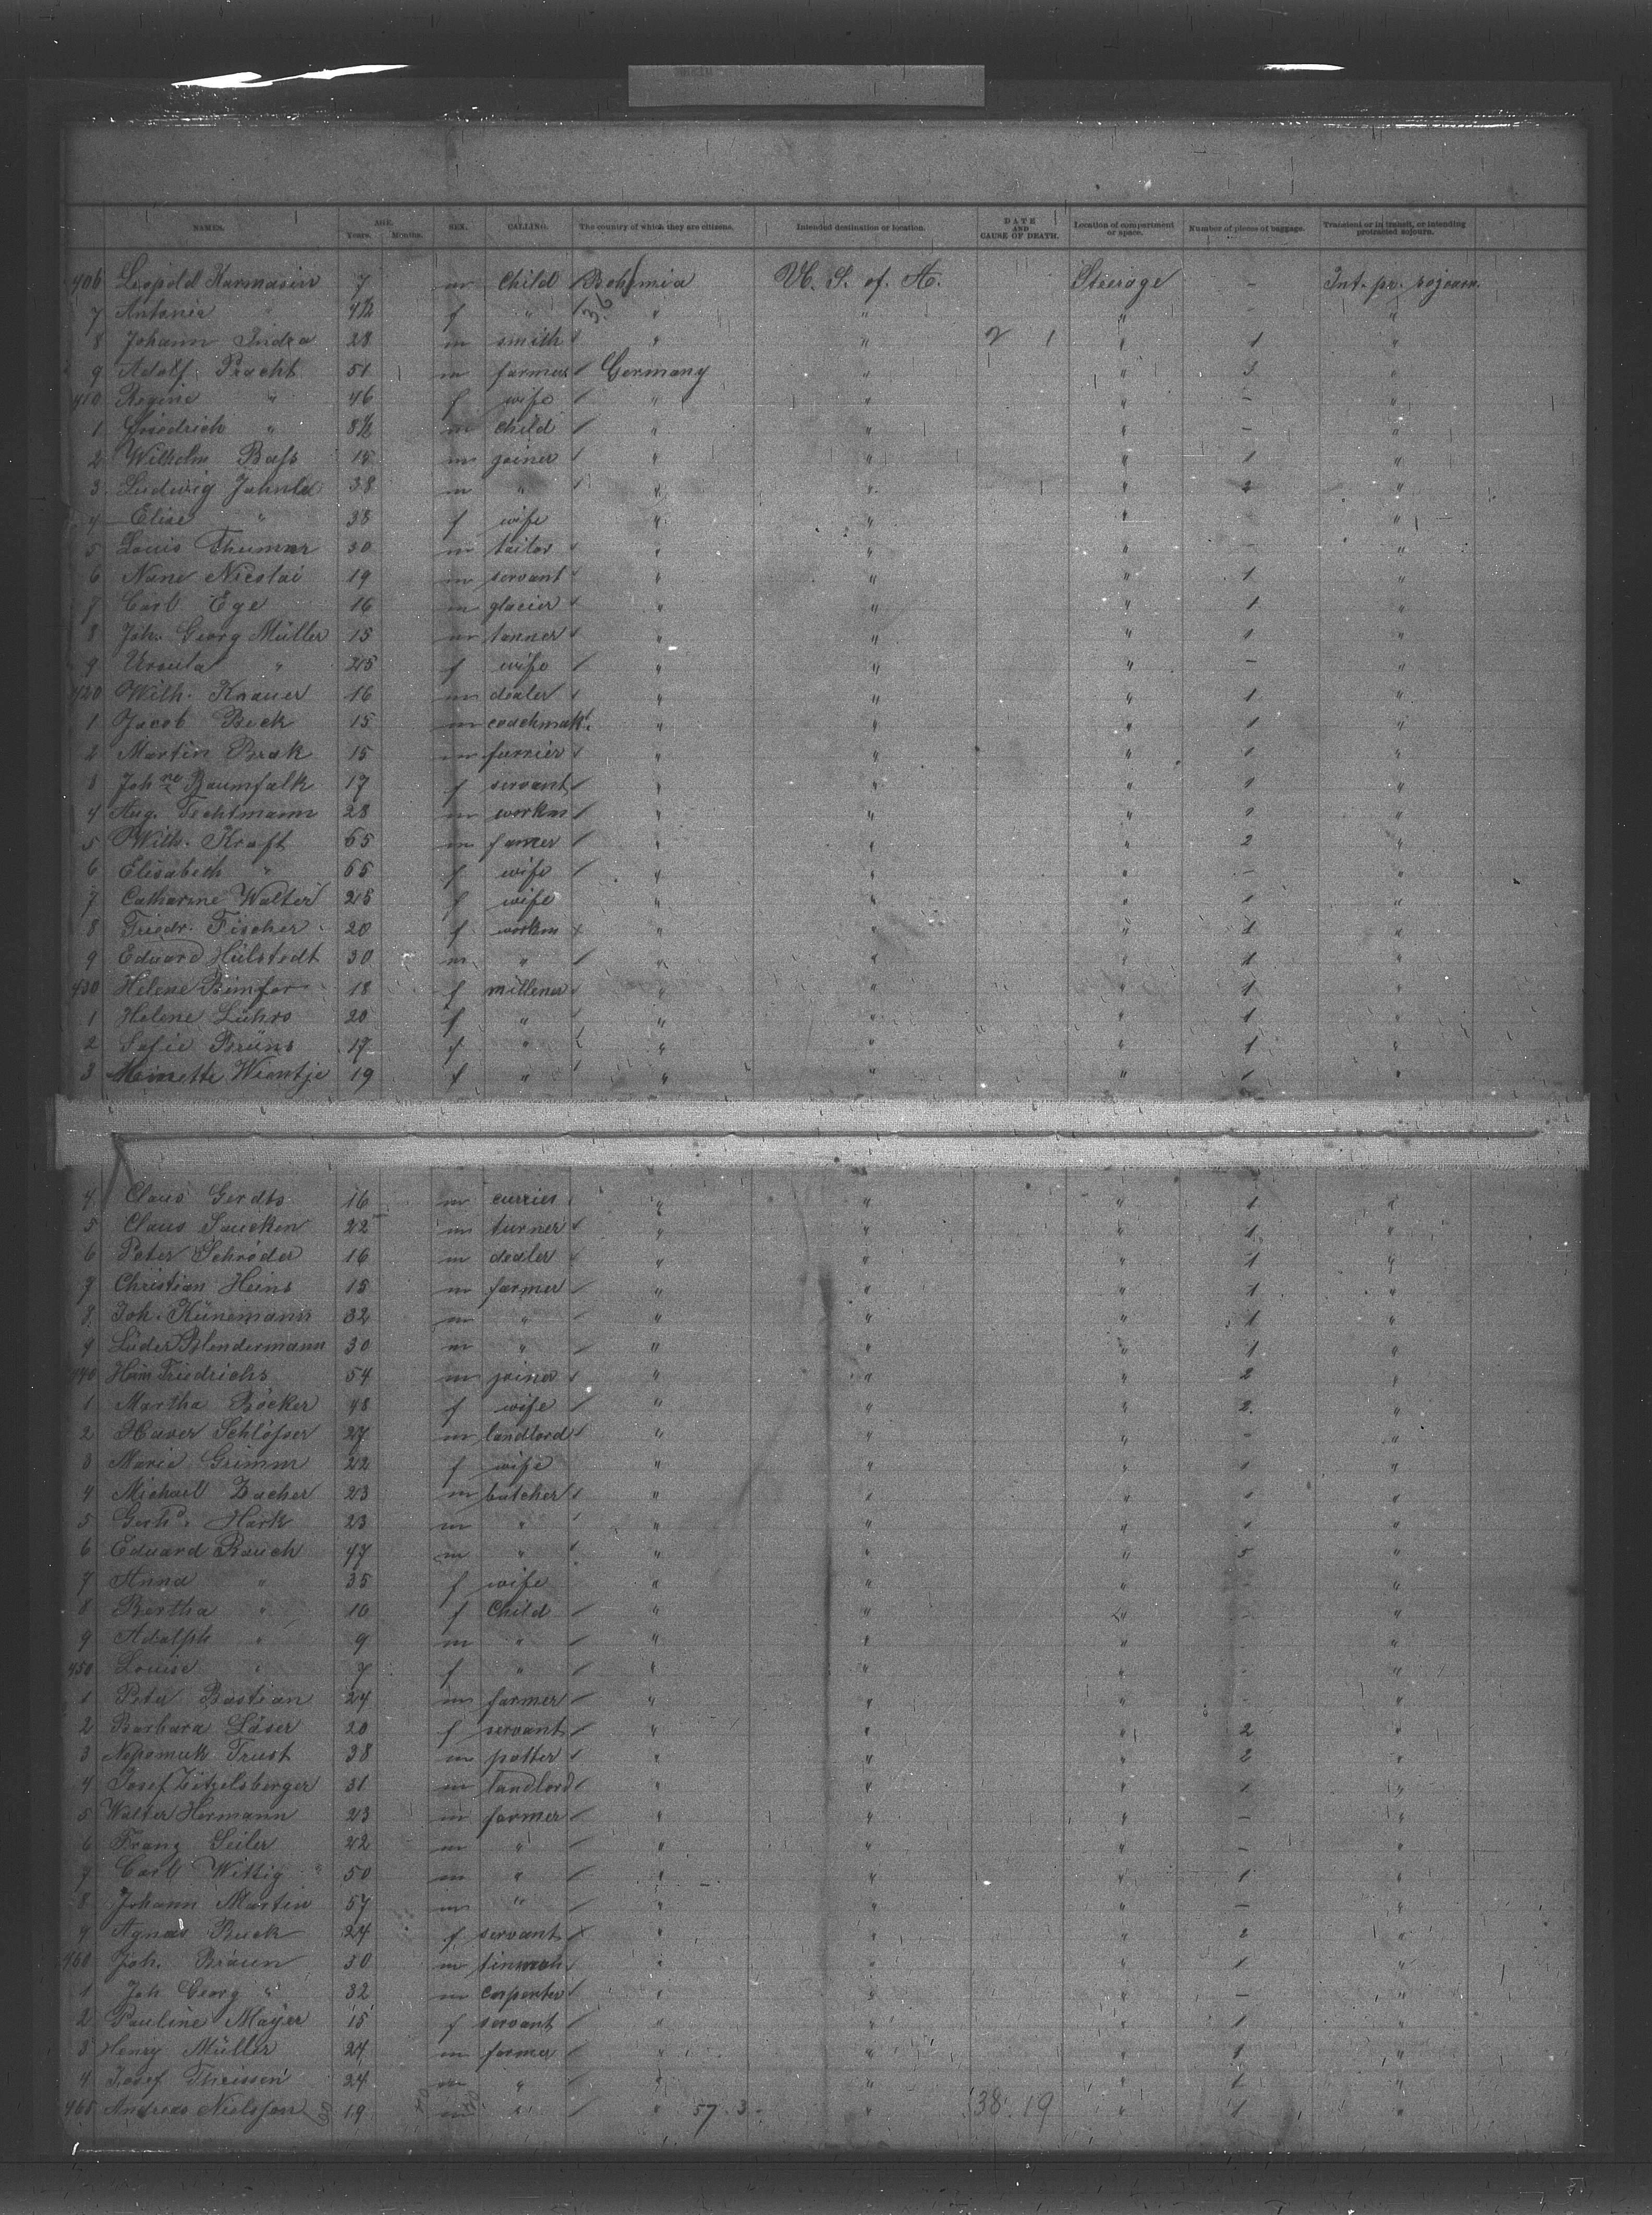 NAMES. AGE. Years. Months. SEX. CALLING. The country of which they are citizens. Intended destination or location. DATE AND CAUSE OF DEATH. Location of compartment or space. Number of pieces of baggage. Transient or in transit, or intending protracted sojourn.
406 Leopold Karmasin 7 m Child Bohemia U. S. of A. Steerage - Int. pr. sojourn.
7 Antonia " 4½ f " " " " - "
8 Johann Indra 28 m smith " " 2 1 " 1 "
9 Adolf Pracht 51 m farmer Germany " " 3 "
410 Regine " 46 f wife " " " - "
1 Friedrich " 8½ m child " " " - "
2 Wilhelm Bass 18 m joiner " " " 1 "
3 Ludwig 38 m " " " " 2 "
4 Elise " 38 f wife " " " "
5 Louis Thummer 30 m tailor " " " - "
6 Nicolai 19 m servant " " " 1 "
7 Carl Ege 16 m glacier " " " 1 "
8 Joh. Georg Müller 15 m tanner " " " 1 "
9 Ursula " 25 f wife " " " - "
420 Wilh. Knauer 16 m dealer " " " 1 "
1 Jacob Beck 15 m coachmak. " " " 1 "
2 Martin Brak 15 m furrier " " " 1 "
3 Johne Baumfalk 17 f servant " " " 1 "
4 Aug. Techtmann 28 m workm " " " 1 "
5 Wilh. Kraft 65 m farmer " " " 2 "
6 Elisabeth " 65 f wife " " " - "
7 Catharine Walter 25 f wife " " " 1 "
8 Friedr. Fischer 20 f workm " " " 1 "
9 Eduard Hülstedt 30 m " " " " 1 "
430 Helene 18 f milliner " " " 1 "
1 Helene Lührs 20 f " " " " 1 "
2 Sofie Brüns 17 f " " " " 1 "
3 Meinette Wientje 19 f " " " " 1 "
4 Claus Gerdts 16 m currier " " " 1 "
5 Claus Saucken 22 m turner " " " 1 "
6 Peter Schröder 16 m dealer " " " 1 "
7 Christian Heins 15 m farmer " " " 1 "
8 Joh. Künemann 32 m " " " " 1 "
9 Lüder Blendermann 30 m " " " " 1 "
440 Heinr Friedrichs 54 m joiner " " " 2 "
1 Martha Böcker 48 f wife " " " 2 "
2 Xaver Schlösser 27 m landlord " " " - "
3 Marie Grimm 22 f wife " " " 1 "
4 Michael Zacher 23 m butcher " " " 1 "
5 Gerhd. Hark 23 m " " " " 1 "
6 Eduard Rauch 47 m " " " " 5 "
7 Anna " 35 f wife " " " - "
8 Bertha " 10 f Child " " " - "
9 Adolph " 9 m " " " " - "
450 Louise " 7 f " " " " - "
1 Peter Bastian 24 m farmer " " " - "
2 Barbara Löser 20 f servant " " " 2 "
3 Nepomuk Trust 38 m potter " " " 2 "
4 Josef Zitzelsberger 31 m landlord " " " 1 "
5 Walter Hermann 23 m farmer " " " - "
6 Franz Seiler 42 m " " " " - "
7 Carl Wittig 50 m " " " " 1 "
8 Johann Martin 57 m " " " " - "
9 Agnes Buck 24 f servant " " " 2 "
460 Joh. Braun 30 m " " " 1 "
1 Joh Georg " 32 m carpenter " " " - "
2 Pauline Mayer 15 f servant " " " 1 "
3 Henry Müller 24 m farmer " " " 1 "
4 Josef Theissen 24 m " " " " 1 "
465 Andreas Nielssen 19 m " " 57 3 " 38 19 " 1 "